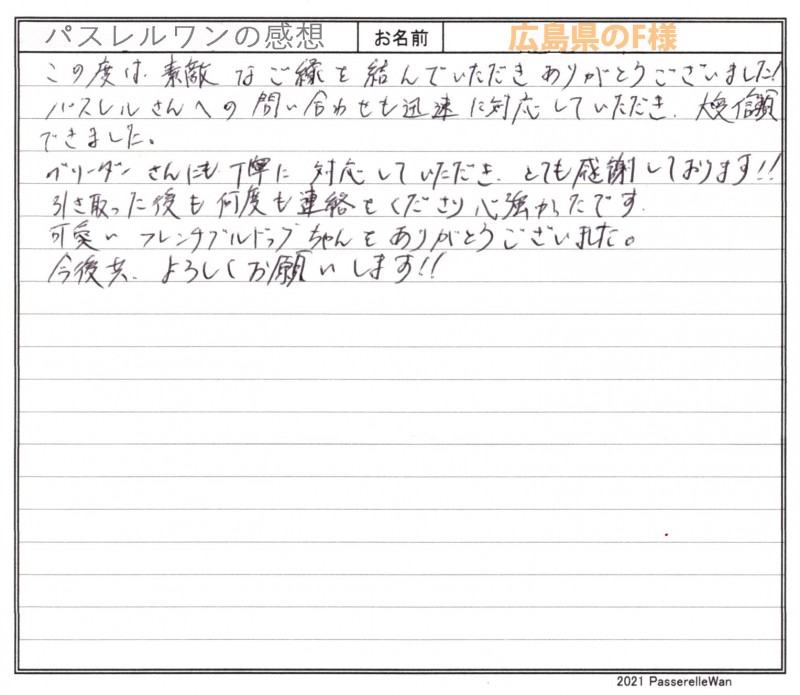 パスレルワンの感想 お名前 広島県のF様
この度は、素敵なご縁を結んでいただきありがとうございました!
パスレルさんへの問い合わせも迅速に対応していただき、大変信頼
できました。
ブリーダーさんにも丁寧に対応していただき、とても感謝しております!!
引き取った後も何度も連絡をくださり心強かったです。
可愛いフレンチブルドッグちゃんをありがとうございました。
今後共、よろしくお願いします!!
2021 PasserelleWan